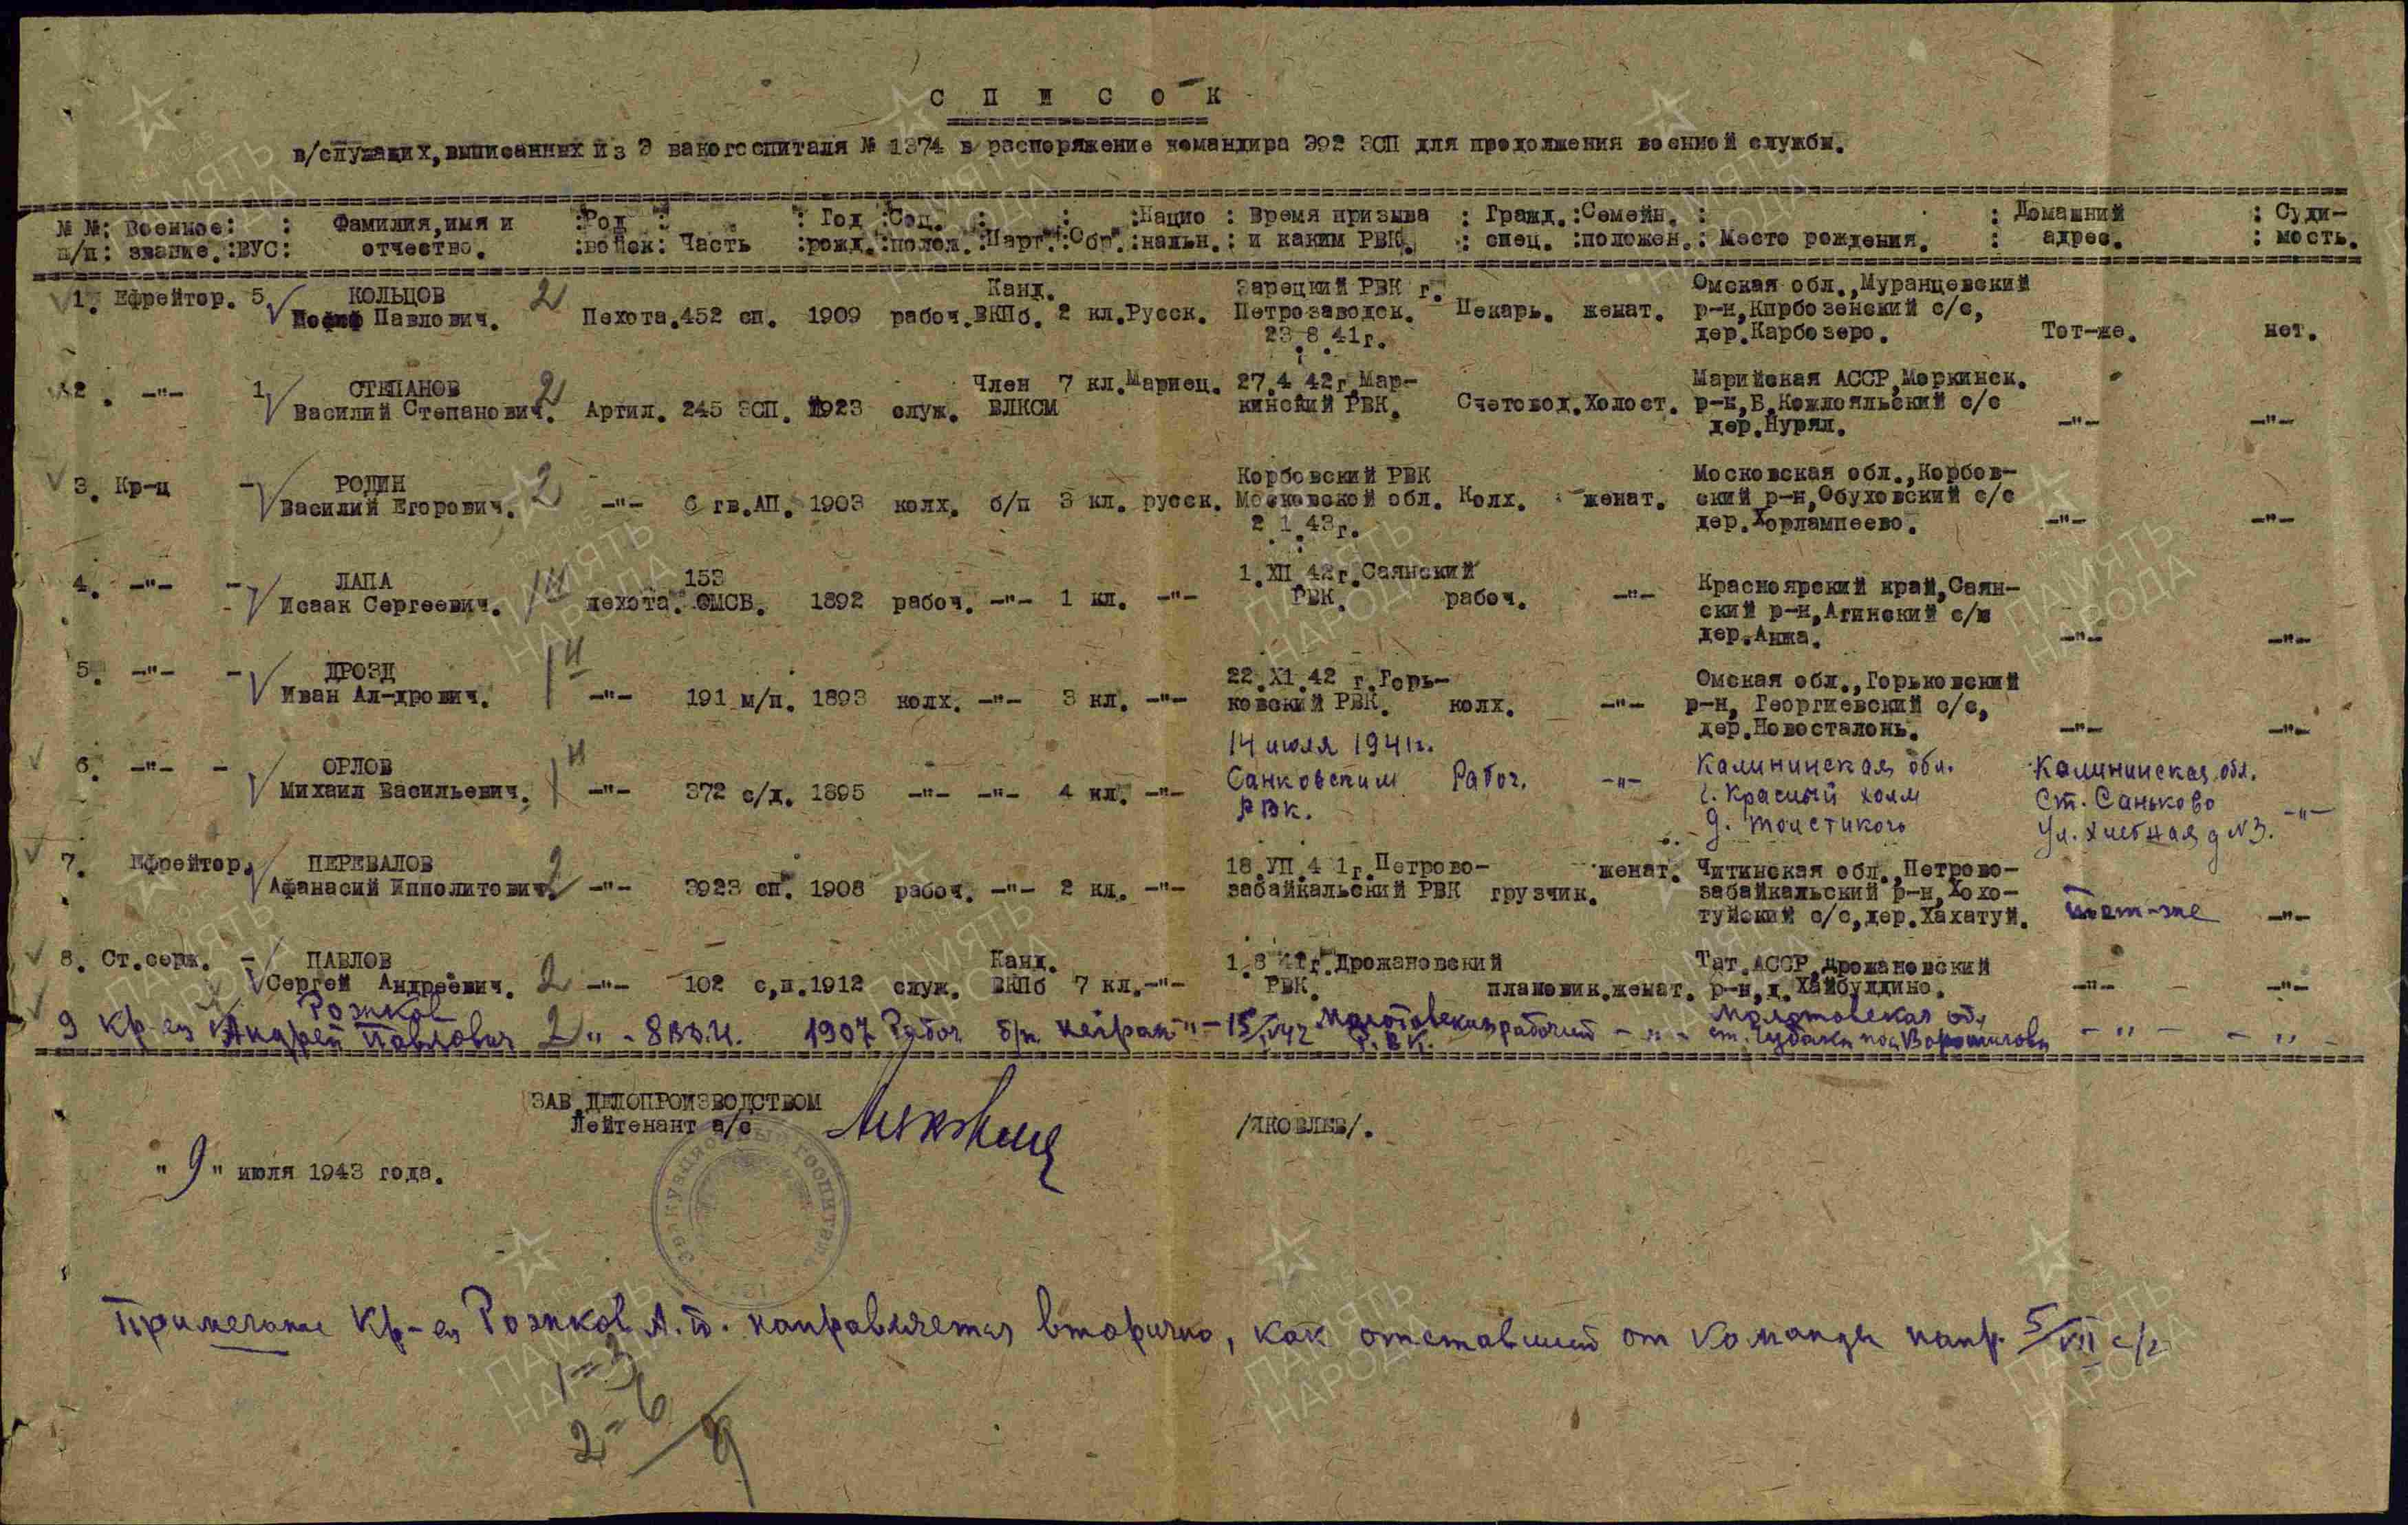 С П И С О К
в/служащих, выписанных из Э вакогоспиталя № 1374 в распоряжение командира 392 ЗСП для продолжения военной службы.
№ №: Военное: : Фамилия, имя и :Род : : Год :Соц. : : :Нацио : Время призыва : Гражд. :Семейн. : : Домашний : Суди-
п/п: звание. :ВУС: отчество. :войск: Часть :рожд.:полож.:Парт.:Обр.:нальн.: и каким РВК. : спец. :положен.: Место рождения. : адрес. : мость.
Канд. Зарецкий РВК г. Омская обл., Муранцевский
1. Ефрейтор. 5 КОЛЬЦОВ 2
Павлович. Пехота. 452 сп. 1909 рабоч. ВКПб. 2 кл. Русск. Петрозаводск. Пекарь. женат. р-н, Кирбозенский с/с,
23.8.41г. дер. Карбозеро. Тот-же. нет.
2. -"- 1 СТЕПАНОВ 2 Член 7 кл. Мариец. 27.4.42г. Мар- Марийская АССР, Моркинск.
Василий Степанович. Артил. 245 ЗСП. 1923 служ. ВЛКСМ кинский РВК. Счетовод. Холост. р-н, Б. Кожлояльский с/с
дер. Нурял. -"- -"-
3. Кр-ц - РОДИН 2 Корбовский РВК Московская обл., Корбов-
Василий Егорович. -"- 6 гв. АП. 1903 колх. б/п 3 кл. русск. Московской обл. Колх. женат. ский р-н, Обуховский с/с
2.1.43г. дер. Хорлампеево. -"- -"-
4. -"- - ЛАПА 153 1.ХП.42г. Саянский Красноярский край, Саян-
Исаак Сергеевич. 1н пехота. ОМСБ. 1892 рабоч. -"- 1 кл. -"- РВК. рабоч. -"- ский р-н, Агинский с/с
дер. Анжа. -"- -"-
5. -"- - ДРОЗД 1н 22.Х1.42 г. Горь- Омская обл., Горьковский
Иван Ал-дрович. -"- 191 м/п. 1893 колх. -"- 3 кл. -"- ковский РВК. колх. -"- р-н, Георгиевский с/с,
дер. Новосталонь. -"- -"-
14 июля 1941г.
6. -"- - ОРЛОВ 1н Санковским Рабоч. -"- Калининская обл. Калининская обл.
Михаил Васильевич. -"- 372 с/д. 1895 -"- -"- 4 кл. -"- РВК. г. Красный холм Ст. Саньково -"-
д. Толстиково Ул. Хлебная д N3.
7. Ефрейтор. ПЕРЕВАЛОВ 18.УП.41г. Петрово- женат. Читинская обл., Петрово-
Афанасий Ипполитович. 2 -"- 3923 сп. 1908 рабоч. -"- 2 кл. -"- забайкальский РВК грузчик. забайкальский р-н, Хохо-
туйский с/с, дер. Хахатуй. Тот-же -"-
8. Ст. серж. - ПАВЛОВ Канд. 1.8.41г. Дрожановский Тат. АССР, Дрожановский
Сергей Андреевич. 2 -"- 102 с,п. 1912 служ. ВКПб 7 кл. -"- РВК. плановик. женат. р-н, д. Хайбулдино. -"- -"-
Рожков Молотовская обл
9 Кр-ец Андрей Павлович 2 -"- 8 ВВ.И. 1907 Рабоч б/п неграм -"- 15/ 42 Молотовским рабочий -"- ст. Губаха пос Ворошилова -"- -"-
Р.ВК.
ЗАВ. ДЕЛОПРОИЗВОДСТВОМ
Лейтенант а/с /ЯКОВЛЕВ/.
"9" июля 1943 года.
Эвакуационный госпиталь
Примечание Кр-ец Рожков А.П. направляется вторично, как отставший от команды напр. 5/VII с/г
1=3
2=6
9